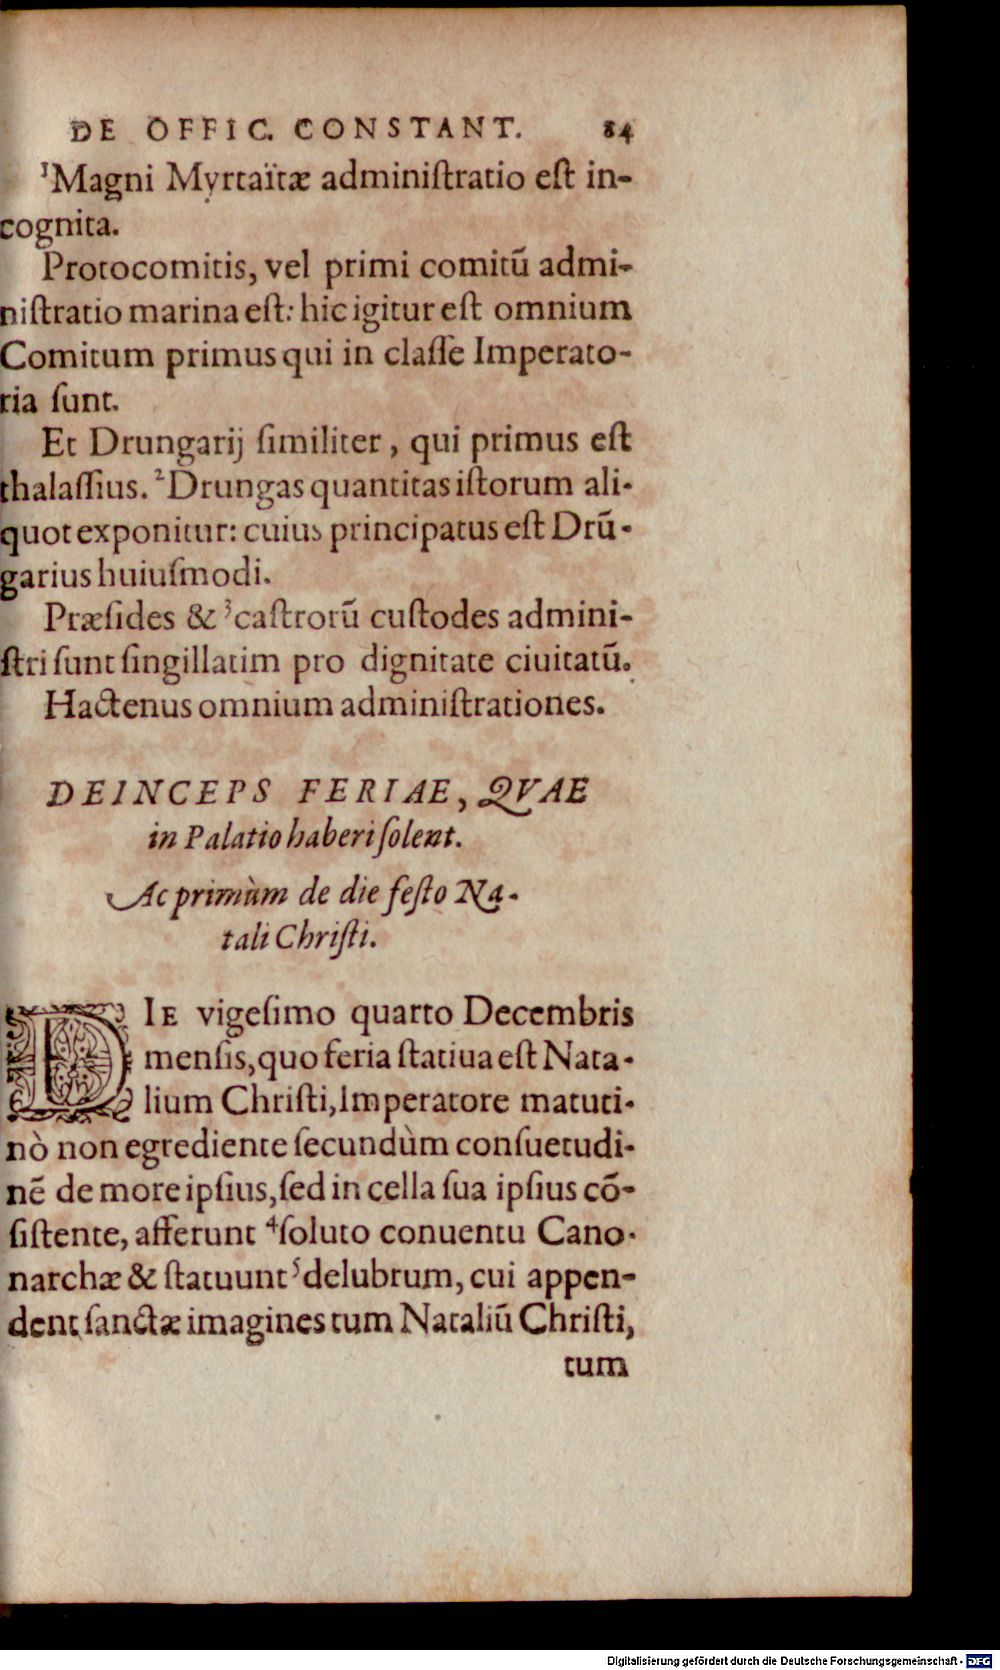 DE OFFIC. CONSTANT. 84
¹Magni Myrtaïtæ adminiſtratio eſt in-
cognita.
Protocomitis, vel primi comitū admi-
niſtratio marina eſt: hic igitur eſt omnium
Comitum primus qui in claſſe Imperato-
ria ſunt.
Et Drungarij ſimiliter, qui primus eſt
thalaſſius. ²Drungas quantitas iſtorum ali-
quot exponitur: cuius principatus eſt Drū-
garius huiuſmodi.
Præſides & ³caſtrorū cuſtodes admini-
ſtri ſunt ſingillatim pro dignitate ciuitatū.
Hactenus omnium adminiſtrationes.
DEINCEPS FERIAE, QVAE
in Palatio haberi ſolent.
Ac primùm de die feſto Na-
tali Chriſti.
DIE vigeſimo quarto Decembris
menſis, quo feria ſtatiua eſt Nata-
lium Chriſti, Imperatore matuti-
nò non egrediente ſecundùm conſuetudi-
nē de more ipſius, ſed in cella ſua ipſius cō-
ſiſtente, afferunt ⁴ſoluto conuentu Cano-
narchæ & ſtatuunt ⁵delubrum, cui appen-
dent ſanctæ imagines tum Nataliū Chriſti,
tum
Digitalisierung gefördert durch die Deutsche Forschungsgemeinschaft - DFG